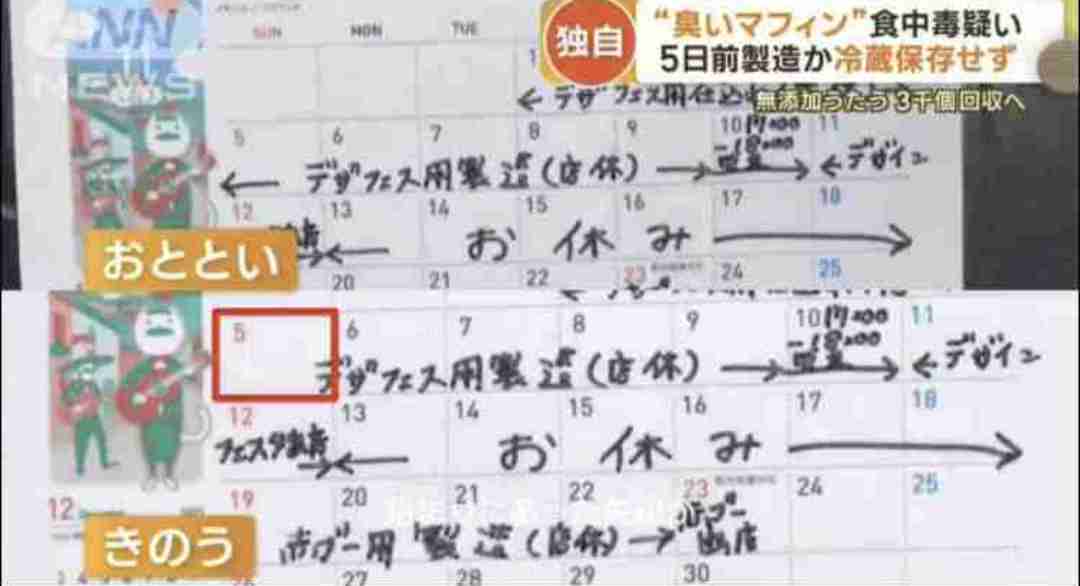 NN
NEWS
独自
“臭いマフィン”食中毒疑い
5日前製造か冷蔵保存せず
無添加うたう 3千個回収へ
SUN MON TUE
← デザフェス用仕込
5 6 7 8 9 10 17:00 11
← デザフェス用製造(店休) → → ← デザイン
12 13 14 15 16 17 18
← お休み →
おととい
20 21 22 23 24 25
5 6 7 8 9 10 17:00 11
デザフェス用製造(店休) → → ← デザイン
12 13 14 15 16 17 18
フェスタ出店 → ← お休み →
19 20 21 22 23 24 25
12
きのう
ボブー用製造(店休) → ボブー出店
26 27 28 29 30